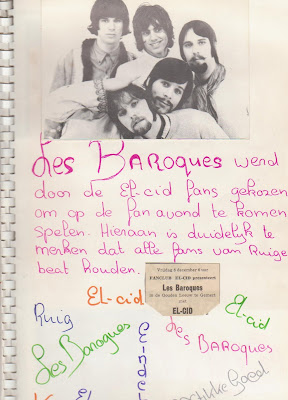 Les BAROQUES werd
door de El-cid fans gekozen
om op de fanavond te komen
spelen. Hieraan is duidelijk te
merken dat alle fans van Ruige
beat houden.
Vrijdag 9 december 8 uur
FANCLUB EL-CID presenteert
Les Baroques
in de Gouden Leeuw te Gemert
met
EL-CID
El-cid
El-cid
Ruig
Les Baroques
Eindel
Les BAROQUES
El
Goed